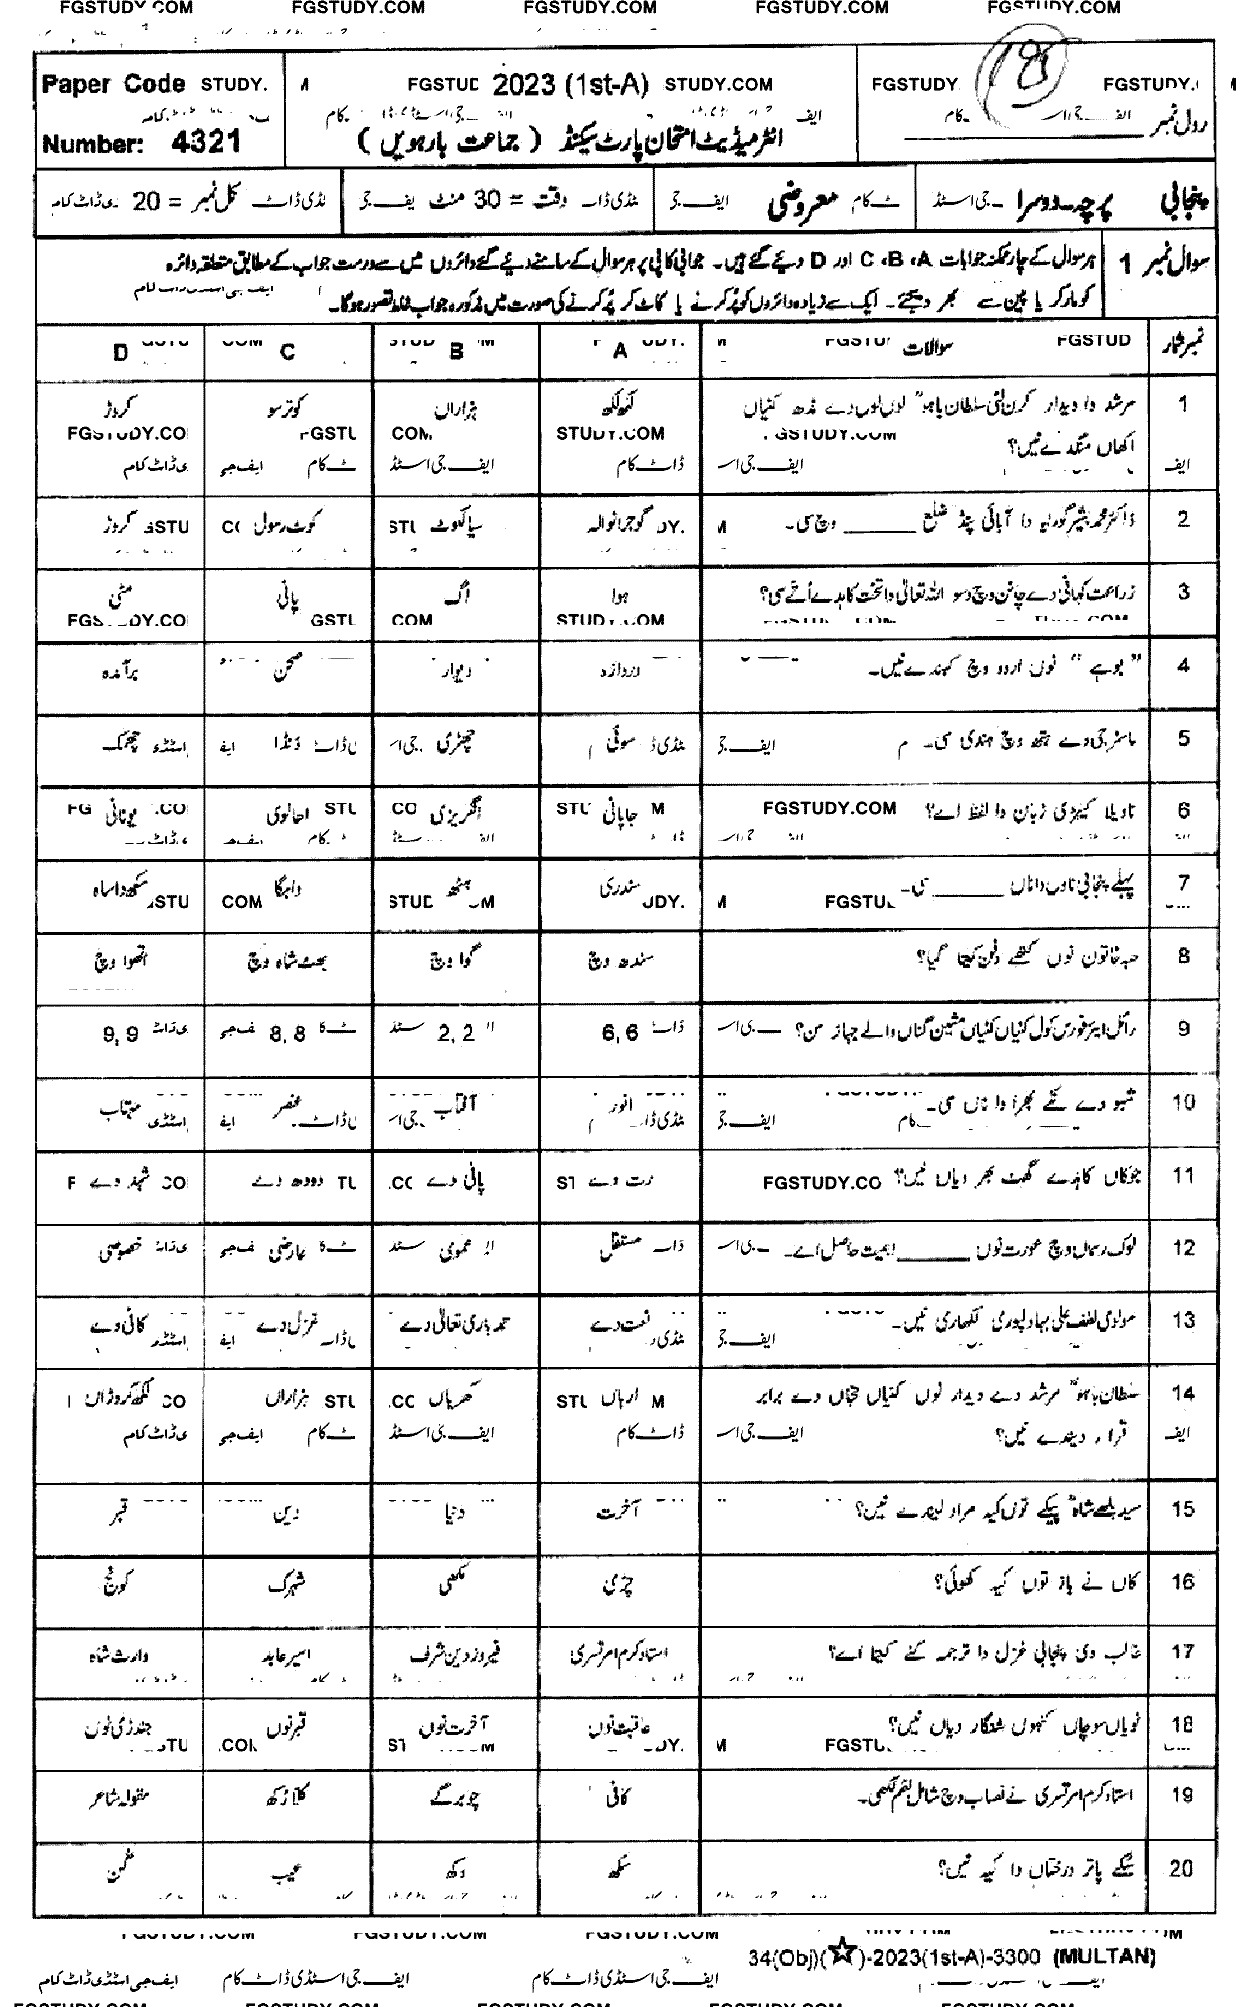 FGSTUDY.COM FGSTUDY.COM FGSTUDY.COM FGSTUDY.COM FGSTUDY.COM
Paper Code 2023 (1st-A)
Number: 4321 انٹرمیڈیٹ امتحان پارٹ سیکنڈ ( جماعت بارہویں ) رول نمبر
پنجابی پرچہ دوسرا معروضی وقت = 30 منٹ کل نمبر = 20
سوال نمبر 1 ہر سوال کے چار ممکنہ جوابات A، B، C اور D دیئے گئے ہیں۔ جوابی کاپی پر ہر سوال کے سامنے دیئے گئے دائروں میں سے درست جواب کے مطابق متعلقہ دائرہ
کو مارکر یا پین سے بھر دیجئے۔ ایک سے زیادہ دائروں کو پُر کرنے یا کاٹ کر پُر کرنے کی صورت میں مذکورہ جواب غلط تصور ہوگا۔
نمبر شمار سوالات A B C D
1 مرشد دا دیدار کرن لئی سلطان باہوؒ لوں لوں دے مڈھ کنیاں لکھ لکھ ہزاراں کروڑ
اکھاں منگدے نیں؟
2 ڈاکٹر محمد بشیر گورایہ دا آبائی پنڈ ضلع ______ وچ سی۔ گوجرانوالہ سیالکوٹ کوٹ رسول کروڑ
3 زراعت کہانی دے چانن وچ دسو اللہ تعالیٰ دا تخت کاہدے اُتے سی؟ ہوا اگ پانی مٹی
4 ”بوہے“ نوں اردو وچ کہندے نیں۔ دروازہ دیوار صحن برآمدہ
5 ماسٹر جی دے ہتھ وچ ہندی سی۔ سوٹی چھڑی ڈنڈا چھمک
6 ناویلا کیہڑی زبان دا لفظ اے؟ جاپانی انگریزی اطالوی یونانی
7 پہلے پنجابی ناول دا ناں ______ سی۔ سندری
8 حبہ خاتون نوں کتھے دفن کیتا گیا؟ سندھ وچ بھٹ شاہ وچ اتھوا وچ
9 رائل ایئر فورس کول کنیاں کنیاں مشین گناں والے جہاز سن؟ 6,6 2,2 8,8 9,9
10 شبو دے نکے بھرا دا ناں سی۔ انور آفتاب عنصر مہتاب
11 جوکاں کاہدے گھٹ بھر دیاں نیں؟ رت دے پانی دے دودھ دے شہد دے
12 لوک رسماں وچ عورت نوں ______ اہمیت حاصل اے۔ مستقل عمومی عارضی خصوصی
13 مولوی لطف علی بہاولپوری لکھاری نیں۔ نعت دے حمد باری تعالیٰ دے غزل دے کافی دے
14 سلطان باہوؒ مرشد دے دیدار نوں کنیاں حجاں دے برابر ارباں کھرباں ہزاراں لکھ کروڑاں
قرار دیندے نیں؟
15 سید بلھے شاہؒ پیکے توں کیہ مراد لیندے نیں؟ آخرت دنیا دین قبر
16 کاں نے باز توں کیہ کھوئی؟ چڑی مکھی شہرک کونج
17 غالب دی پنجابی غزل دا ترجمہ کنے کیتا اے؟ استاد کرم امرتسری فیروز دین شرف اسیر عابد وارث شاہ
18 نویاں سوچاں کنہوں شنگار دیاں نیں؟ عاقبت نوں آخرت نوں قبر نوں جندڑی نوں
19 استاد کرم امرتسری نے نصاب وچ شامل نظم لکھی۔ کافی چو برگے کلا رکھ مقولہ شاعر
20 سُکے پاتر درختاں دا کیہ نیں؟ سکھ دکھ عیب
34(Obj)(☆)-2023(1st-A)-3300 (MULTAN)
ایف جی اسٹڈی ڈاٹ کام ایف جی اسٹڈی ڈاٹ کام ایف جی اسٹڈی ڈاٹ کام